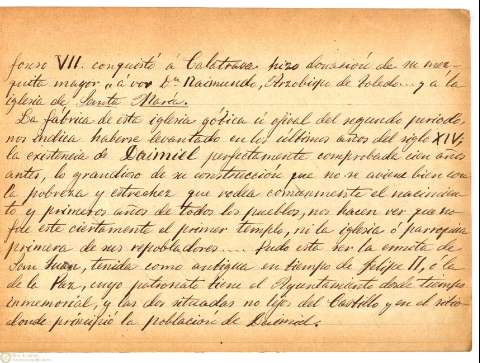 fonso VII. conquistó á Calatrava hizo donación de su mez-
quita mayor, "á vos Dn Raimundo, Arzobispo de Toledo... y á la
iglesia de Santa Maria.
La fábrica de esta iglesia gótica ú ojival del segundo periodo,
nos indica haberse levantado en los últimos años del siglo XIV;
la existencia de Daimiel perfectamente comprobada cien años
antes, lo grandioso de su construcción que no se aviene bien con
la pobreza y estrechez que rodea comunmente el nacimien-
to y primeros años de todos los pueblos, nos hacen ver que no
fué este ciertamente el primer templo, ni la iglesia ó parroquia
primera de sus repobladores.... Pudo esta ser la ermita de
San Juan, tenida como antigua en tiempo de Felipe II, ó la
de la Paz, cuyo patronato tiene el Ayuntamiento desde tiempo
inmemorial, y las dos situadas no lejos del Castillo y en el sitio
donde principió la población de Daimiel.